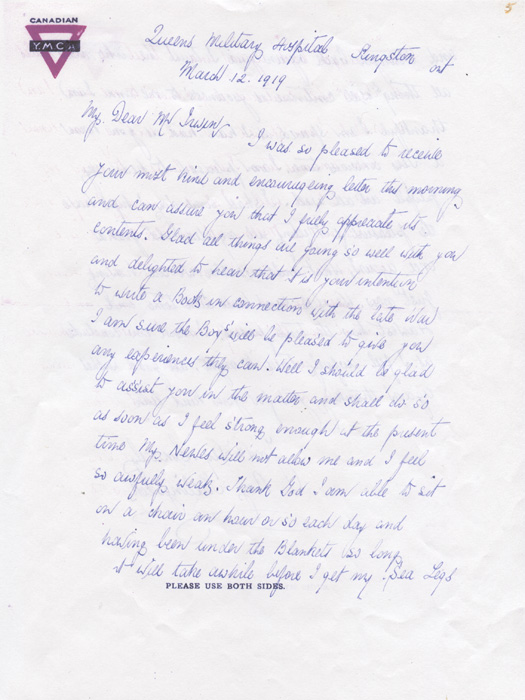 CANADIAN
Y.M.C.A
5
Queens Military Hospital Kingston ont
March 12. 1919
My Dear Mr Irwin
I was so pleased to receive
your most kind and encourageing letter this morning
and can assure you that I fully appreciate its
contents. Glad all things are going so well with you
and delighted to hear that it is your intention
to write a Book in connection with the late War
I am sure the Boys will be pleased to give you
any experiences they can. Well I should be glad
to assist you in the matter and shall do so
as soon as I feel strong enough at the present
time My Nerves will not allow me and I feel
so awfully weak. Thank God I am able to sit
on a chair an hour or so each day and
having been under the Blankets so long
it will take awhile before I get my Sea Legs
PLEASE USE BOTH SIDES.